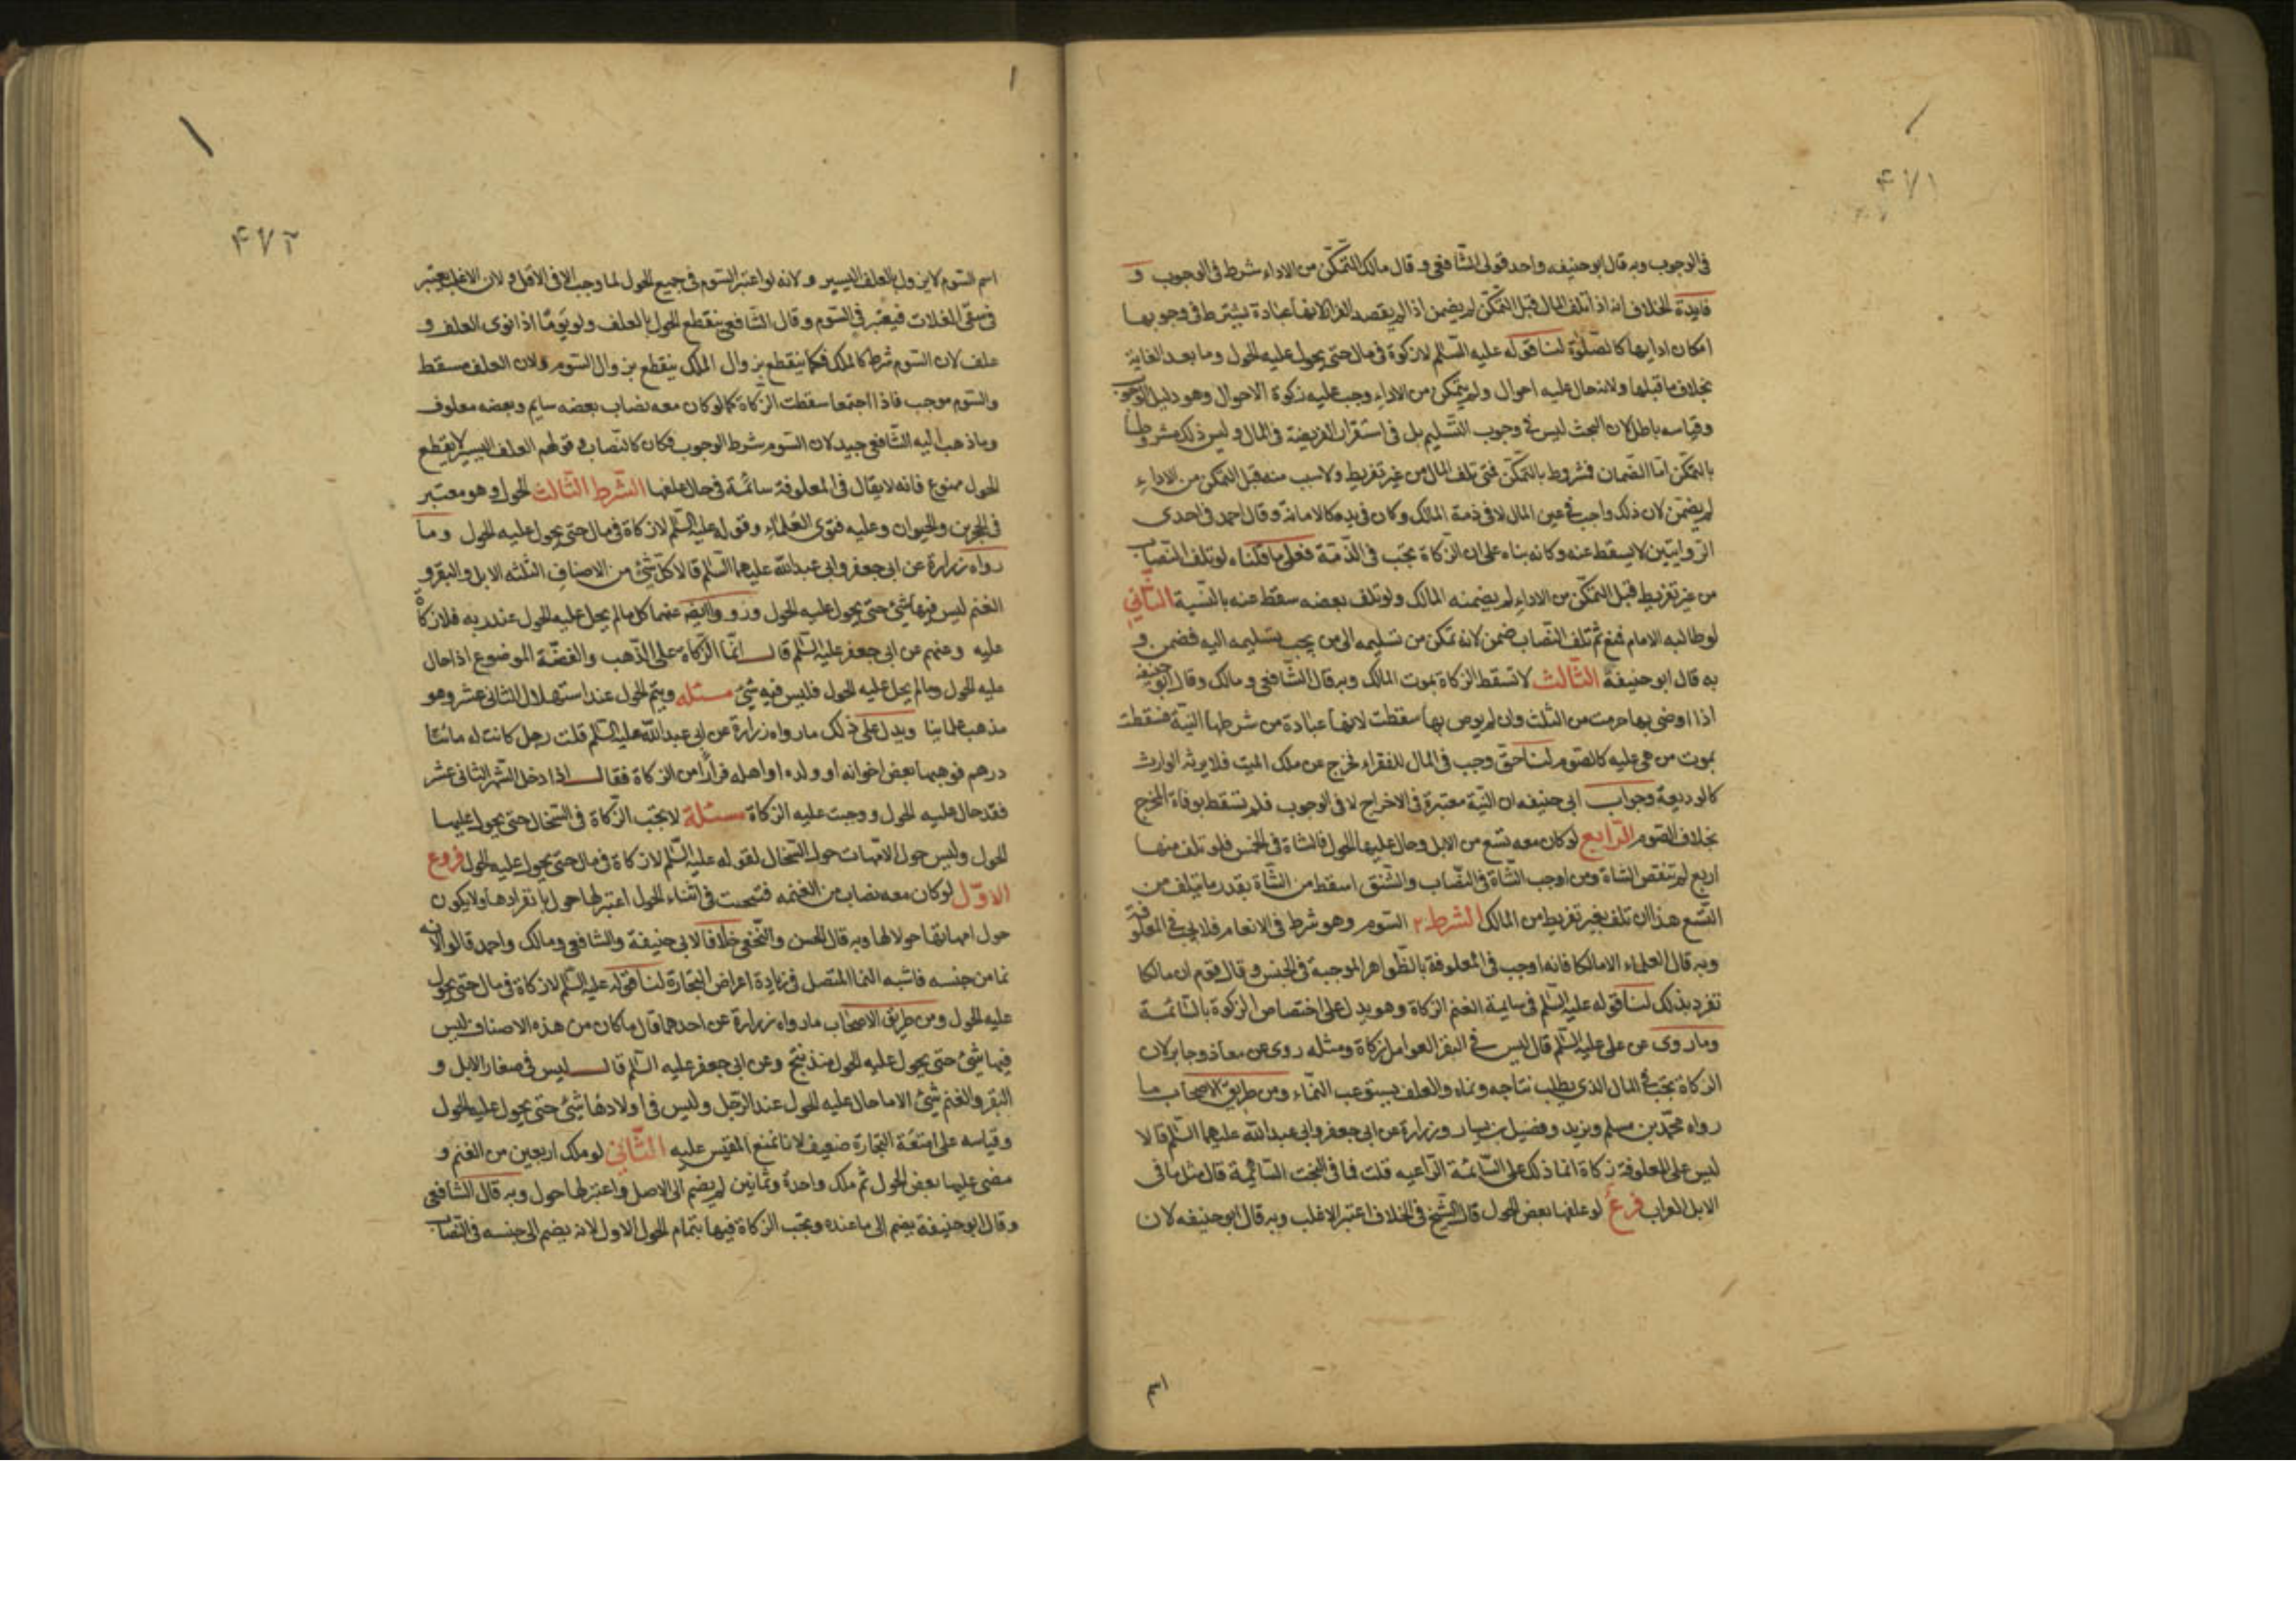 ۴۷۱
في الوجوب وبه قال ابو حنيفه واحد قولى الشافعى و قال مالك التمكن من الاداء شرط في الوجوب و
فايدة الخلاف انه اذا تلف المال قبل التمكن لم يضمن اذا لم يقصد الفرار لانها عبادة يشترط في وجوبها
امكان ادايها كالصلوة لنا قوله عليه السلم لا زكوة في مال حتى يحول عليه الحول وما بعد الغاية
بخلاف ما قبلها ولانه حال عليه احوال ولم يتمكن من الاداء وجب عليه زكوة الاحوال وهو دليل الوجوب
وقياسه باطل لان البحث ليس في وجوب التسليم بل في استقرار الفريضة في المال و ليس ذلك مشروطا
بالتمكن اما الضمان فمشروط بالتمكن فمتى تلف المال من غير تفريط ولا سبب منه قبل التمكن من الاداء
لم يضمن لان ذلك واجب في عين المال لا في ذمة المالك وكان في يده كالامانة وقال احمد في احدى
الروايتين لا يسقط عنه وكانه بناه على ان الزكاة تجب في الذمة فعلى ما قلناه لو تلف النصاب
من غير تفريط قبل التمكن من الاداء لم يضمنه المالك ولو تلف بعضه سقط عنه بالنسبة الثاني
لو طالبه الامام فمنع ثم تلف النصاب ضمن لانه تمكن من تسليمه الى من يجب تسليمه اليه فضمن و
به قال ابو حنيفة الثالث لا تسقط الزكاة بموت المالك وبه قال الشافعى و مالك وقال ابو حنيفه
اذا اوصى بها خرجت من الثلث وان لم يوص بها سقطت لانها عبادة من شرطها النية فسقطت
بموت من هى عليه كالصوم لنا حق وجب في المال للفقراء فخرج عن ملك الميت فلا يرثه الوارث
كالوديعة وجواب ابى حنيفه ان النية معتبرة في الاخراج لا في الوجوب فلم تسقط بوفاة المخرج
بخلاف الصوم الرابع لو كان معه تسع من الابل وحال عليها الحول فالشاة في الخمس فلو تلف منها
اربع لم تنقص الشاة ومن اوجب الشاة في النصاب والشنق اسقط من الشاة بقدر ما يتلف من
التسع هذا ان تلف بغير تفريط من المالك الشرط ٢ السوم وهو شرط في الانعام فلا يجب في المعلوفة
وبه قال العلماء الا مالكا فانه اوجب في المعلوفة بالظواهر الموجبة في الجنس و قال قوم ان مالكا
تفرد بذلك لنا قوله عليه السلم في سايمة الغنم الزكاة وهو يدل على اختصاص الزكوة بالسائمة
وما روى عن على عليه السلم قال ليس في البقر العوامل زكاة ومثله روى عن معاذ وجابر لان
الزكاة تجب في المال الذى يطلب نتاجه ونماه والعلف يستوعب النماء ومن طريق الاصحاب ما
رواه محمد بن مسلم وبريد وفضيل بن يسار وزرارة عن ابى جعفر وابى عبد الله عليهما السلم قالا
ليس على المعلوفة زكاة انما ذلك على السائمة الراعيه قلت فما في البخت السائمة قال مثل ما في
الابل العراب فرع لو علفها بعض الحول قال الشيخ في الخلاف اعتبر الاغلب وبه قال ابو حنيفه لان
اسم
۴۷۲
اسم السوم لا يزول بالعلف اليسير و لانه لو اعتبر السوم في جميع الحول لما وجب الا في الاقل و لان الاغلب يعتبر
في سقى الغلات فيعتبر في السوم و قال الشافعى ينقطع الحول بالعلف ولو يوما اذا نوى العلف و
علف لان السوم شرط كالملك فكما ينقطع بزوال الملك ينقطع بزوال السوم ولان العلف مسقط
والسوم موجب فاذا اجتمعا سقطت الزكاة كما لو كان معه نصاب بعضه سايم وبعضه معلوف
وما ذهب اليه الشافعى جيد لان السوم شرط الوجوب فكان كالنصاب و قولهم العلف اليسير لا يقطع
الحول ممنوع فانه لا يقال في المعلوفة سائمة في حال علفها الشرط الثالث الحول و هو معتبر
في الحجرين والحيوان وعليه فتوى العلماء وقوله عليه السلم لا زكاة في مال حتى يحول عليه الحول وما
رواه زرارة عن ابى جعفر وابى عبد الله عليهما السلم قالا كل شئ من الاصناف الثلثه الابل والبقر و
الغنم ليس فيها شئ حتى يحول عليه الحول ورووا ايضا عنهما كل ما لم يحل عليه الحول عند ربه فلا زكاة
عليه وعنهم عن ابى جعفر عليه السلم قال انما الزكاة على الذهب والفضة الموضوع اذا حال
عليه الحول وما لم يحل عليه الحول فليس فيه شئ مسئله ويتم الحول عند استهلال الثانى عشر وهو
مذهب علمائنا ويدل على ذلك ما رواه زرارة عن ابى عبد الله عليه السلم قلت رجل كانت له مائتا
درهم فوهبها بعض اخوانه او ولده او اهله فرارا من الزكاة فقال اذا دخل الشهر الثانى عشر
فقد حال عليه الحول ووجبت عليه الزكاة مسئلة لا تجب الزكاة في السخال حتى يحول عليها
الحول وليس حول الامهات حول السخال لقوله عليه السلم لا زكاة في مال حتى يحول عليه الحول فروع
الاول لو كان معه نصاب من الغنمه فنتجت في اثناء الحول اعتبر لها حول بانفرادها ولا يكون
حول امهاتها حولا لها وبه قال الحسن والنخعى خلافا لابى حنيفة والشافعى ومالك واحمد قالوا لانه
نما من جنسه فاشبه النما المتصل في زيادة اعراض التجارة لنا قوله عليه السلم لا زكاة في مال حتى يحول
عليه الحول ومن طريق الاصحاب ما رواه زرارة عن احدهما قال ما كان من هذه الاصناف ليس
فيها شئ حتى يحول عليه الحول منذ نتج وعن ابى جعفر عليه السلم قال ليس في صغار الابل و
البقر والغنم شئ الا ما حال عليه الحول عند الرجل وليس في اولادها شئ حتى يحول عليه الحول
وقياسه على امتعة التجارة ضعيف لانا نمنع المقيس عليه الثانى لو ملك اربعين من الغنم و
مضى عليها بعض الحول ثم ملك واحدة وثمانين لم يضم الى الاصل واعتبر لها حول وبه قال الشافعى
وقال ابو حنيفة يضم الى ما عنده وتجب الزكاة فيها بتمام الحول الاول لانه يضم الى جنسه في النصاب